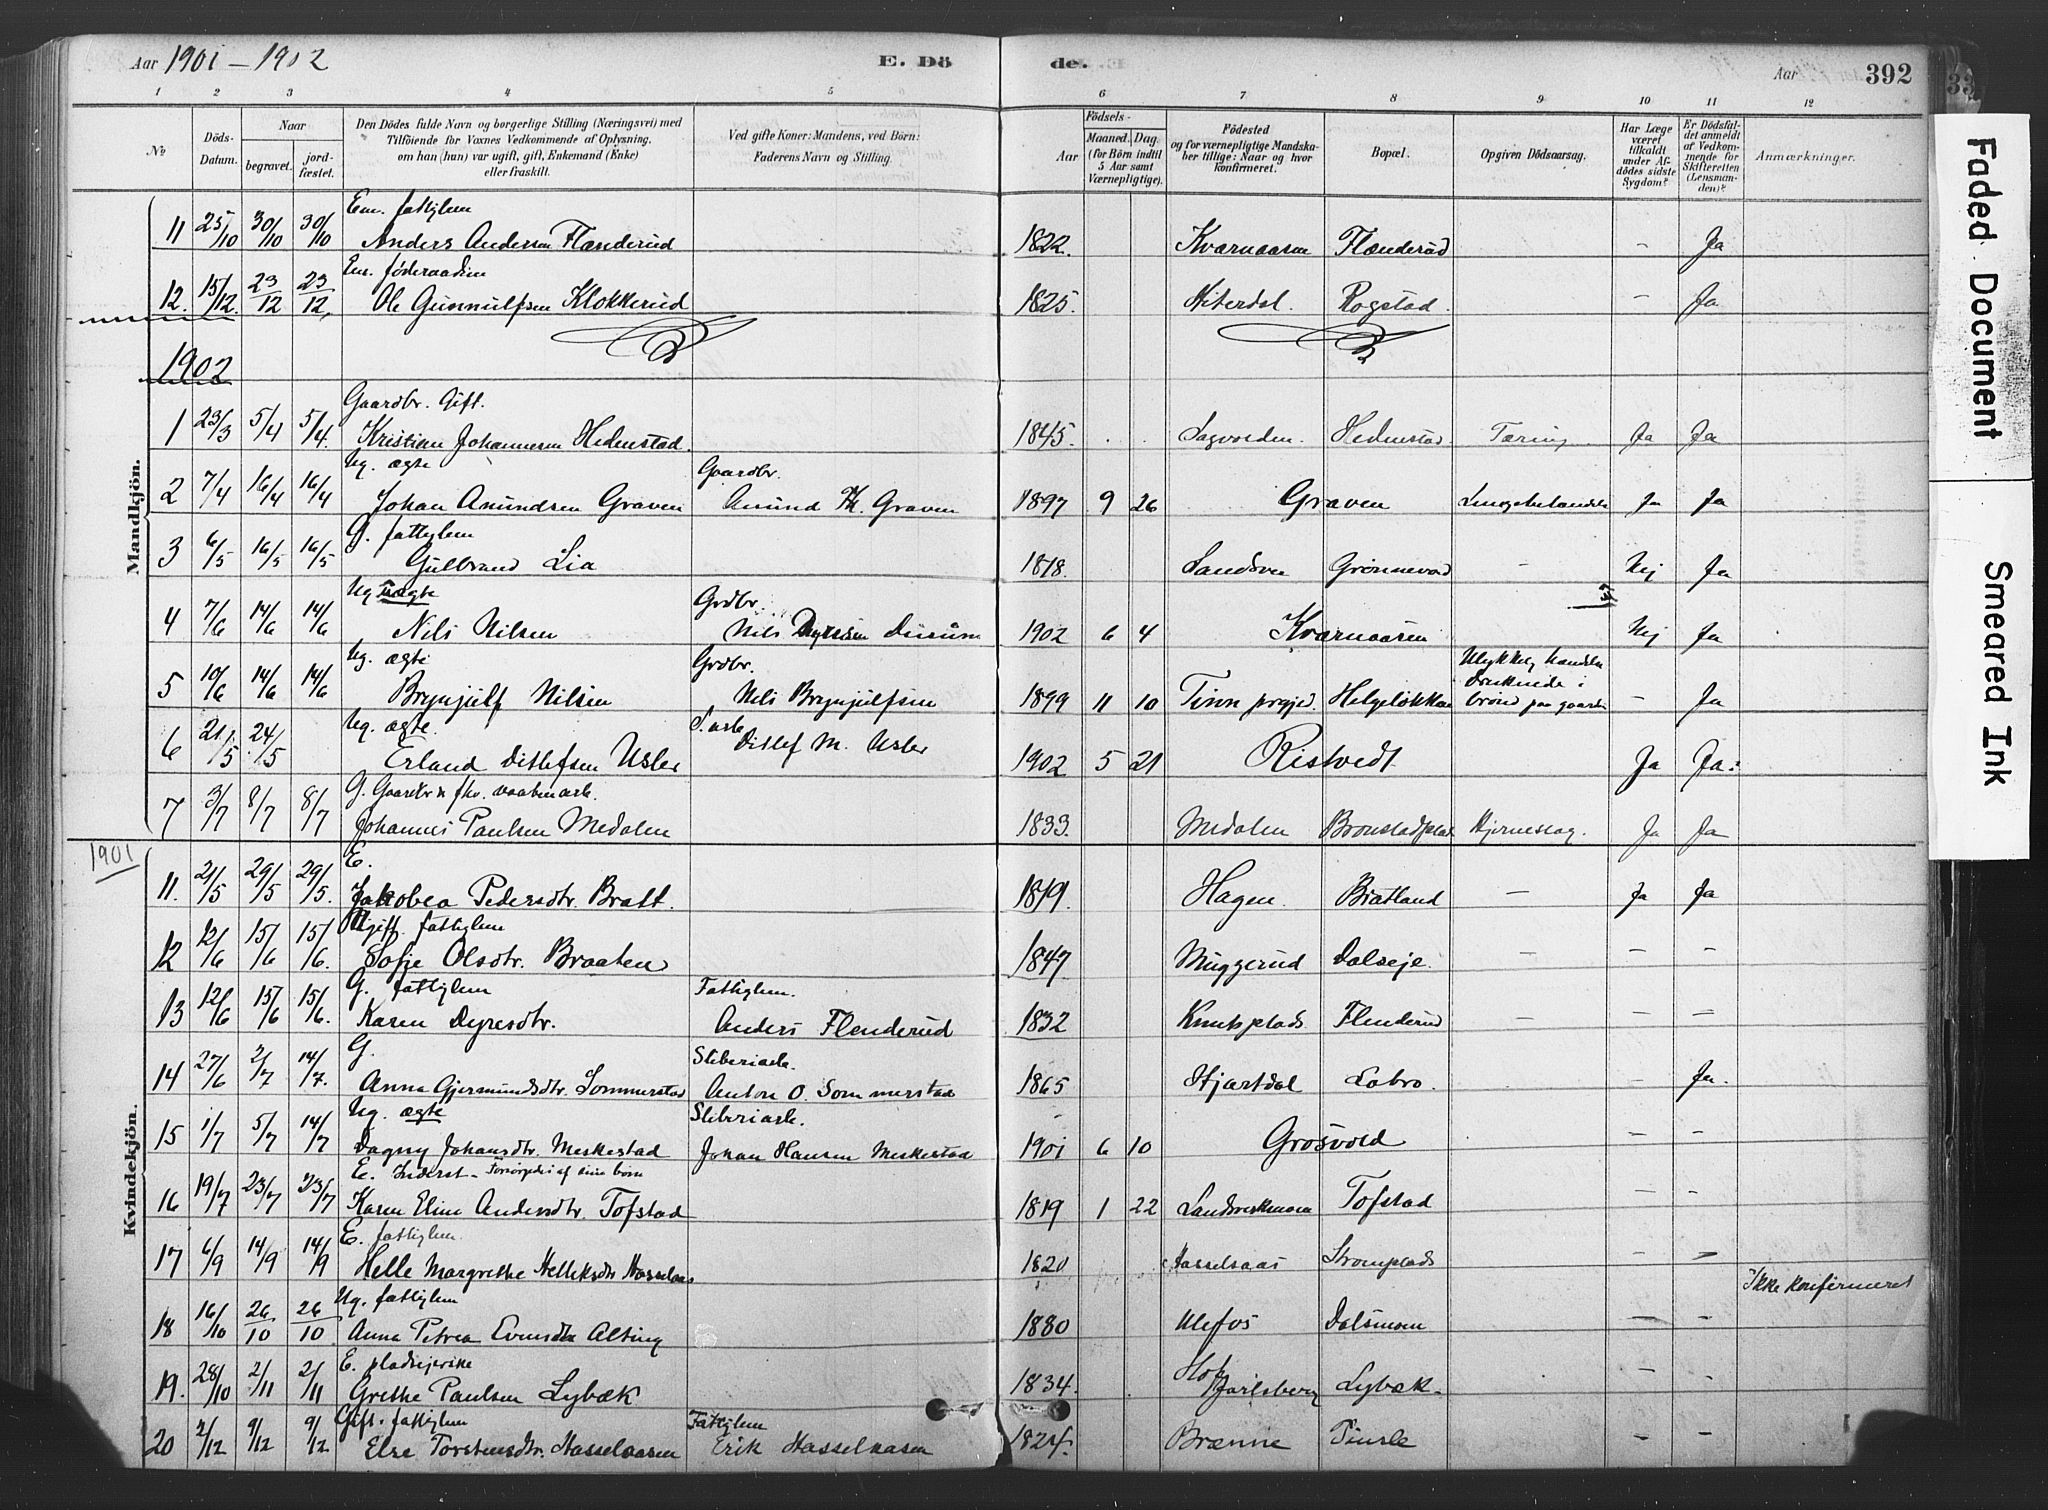 Aar 1901 – 1902 E. Dö de. Aar 392
1 2 3 4 5 6 7 8 9 10 11 12
№
Döds-Datum.
Naar
begravet.
jord-fæstet.
Den Dödes fulde Navn og borgerlige Stilling (Næringsvei) med
Tilföiende for Voxnes Vedkommende af Oplysning,
om han (hun) var ugift, gift, Enkemand (Enke)
eller fraskilt.
Ved gifte Koner: Mandens, ved Börn:
Faderens Navn og Stilling.
Födsels-
Aar
Maaned. Dag.
(for Börn indtil
5 Aar samt
Værnepligtige).
Födested
og for værnepligtige Mandska-
ber tillige: Naar og hvor
konfirmeret.
Bopæl.
Opgiven Dödsaarsag.
Har Læge
været
tilkaldt
under Af-
dödes sidste
Sygdom?
Er Dödsfal-
det anmeldt
af Vedkom-
mende for
Skifteretten
(Lensman-
den)?
Anmærkninger.
Mandkjön.
Em. fattiglem
11 25/10 30/10 30/10 Anders Andersen Flænderud 1822. Kvarnaasen Flænderud – Ja
Em. föderaadsm
12. 15/12. 23/12 23/12, Ole Gunnulfsen Klokkerud 1825. Hiterdal. Rogstad. – Ja
1902
Gaardbr. Gift.
1 23/3 5/4 5/4. Kristian Johannesen Hedenstad. 1845. Sagvolden. Hedenstad Tæring. Ja Ja
Ug. ægte Gaardbr.
2 7/4 16/4 16/4 Johan Amundsen Graven Amund Th. Graven 1897 9 26 Graven Ja Ja
G. fattiglem
3 6/5 16/5 16/5 Gulbrand Lia 1818. Sandsvær – Nej Ja
Ug Uægte Grdbr.
4 7/6 14/6 14/6 Nils Nilsen Nils Dyresen 1902 6 4 Kvarnaasen Nej Ja
Ug. ægte Grdbr. Ulykkelig hændelse
5 10/6 14/6 14/6 Brynjulf Nilsen Nils Brynjulfsen 1899 11 10 Tinn prgjd. Helgeløkken Druknede i brønd paa gaarden – Ja
Ug. ægte.
6 21/5 24/5 Erland Ditlefsen Usler Ditlef M. Usler 1902 5 21 Ristvedt Ja Ja.
G. Gaardbr & fhv. vaabenarb.
7 3/7 8/7 8/7 Johannes Paulsen Medalen 1833. Medalen Bronstadplad Hjerneslag. Ja Ja
1901
Kvindekjön.
E.
11. 21/5 29/5 29/5. Jakobea Pedersdtr. Bratt. 1819. Hagen. Bratland – Ja Ja
Ugift. fattiglem
12 12/6 15/6 15/6. Sofie Olsdtr. Braaten 1847 Muggerud Dalseje. – – –
G. fattiglem Fattiglem.
13 12/6 15/6 15/6. Karen Dyresdtr. Anders Flenderud 1832 Knutsplads Flenderud – – –
G. Sliberiarb.
14 27/6 2/7 14/7. Anna Gjermundsdtr. Sommerstad Anton O. Sommerstad 1865 Hjartdal Labro. – Ja.
Ug. ægte Sliberiarb.
15 1/7 5/7 14/7 Dagny Johansdtr. Meskestad Johan Hansen Meskestad 1901 6 10 Grosvold – –
E. Inderst – Forsørgedes af sine børn
16 19/7 23/7 23/7 Karen Eline Andersdtr. Tofstad 1819 1 22 Tofstad – –
E. fattiglem.
17 6/9 14/9 14/9 Helle Margrethe Helliksdtr Hasselaas 1820 Hasselaas Stromplads – –
Ug. fattiglem Ikke konfirmeret
18 16/10 26/10 26/10 Anna Petrea Evensdtr Alting 1880 Ulefos Dalsmoen – –
E. pladsejerske
19. 28/10 2/11 2/11 Grethe Paulsen Lybæk 1834. Hof Jarlsberg Lybæk. – –
Gift. fattiglem Fattiglem
20 2/12 9/12 9/12 Else Torstensdtr. Hasselaasen Erik Hasselaasen 1824. Brænne – –
Faded Document
Smeared Ink